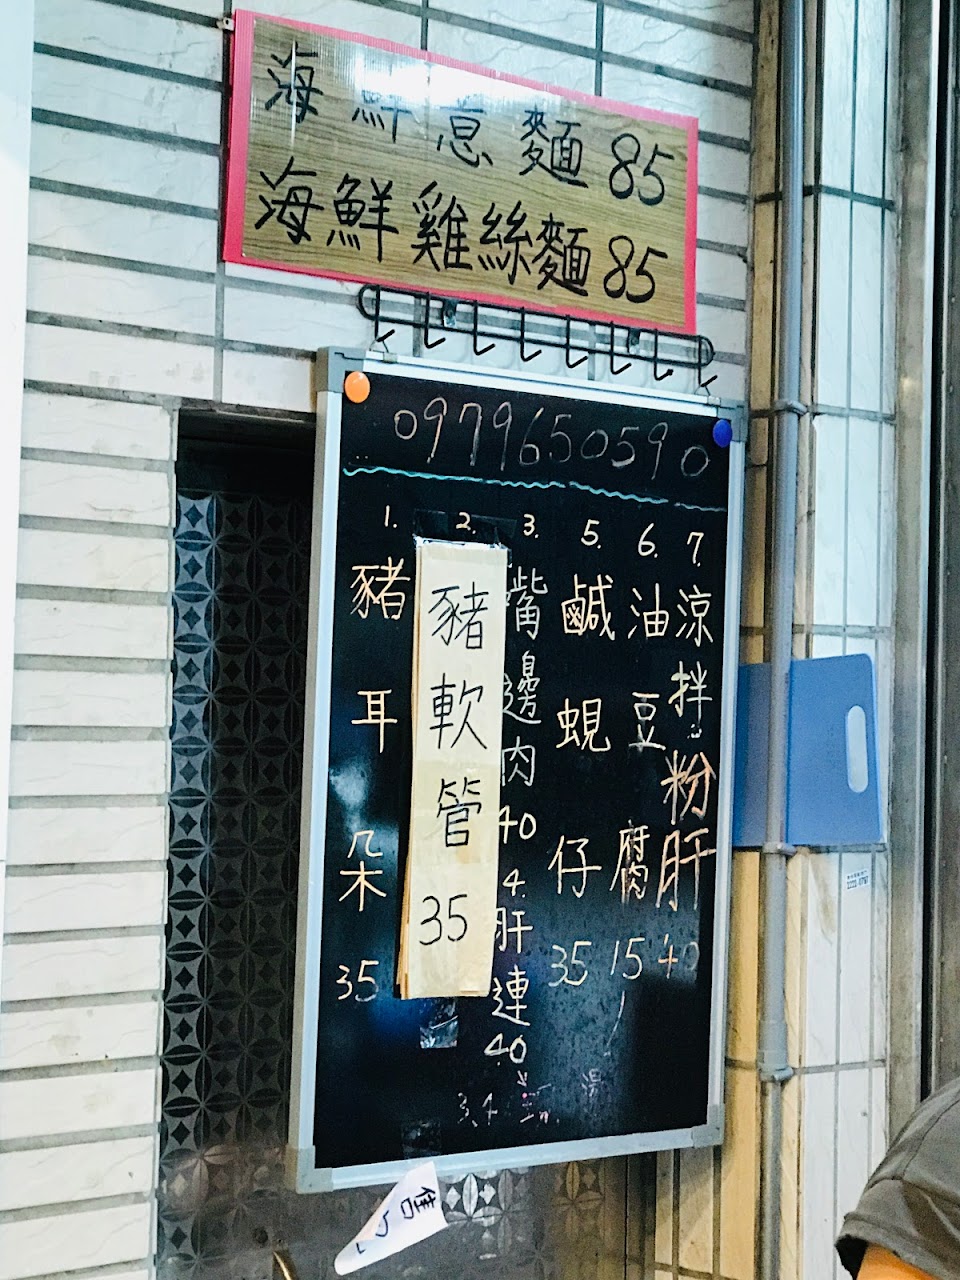 海鮮意麵 85
海鮮雞絲麵 85
0979650590
1. 豬耳朵 35
2. 豬軟管 35
3. 嘴邊肉 40
4. 肝連 40
5. 鹹蜆仔 35
6. 油豆腐 15
7. 涼拌粉肝 40
3.4
湯